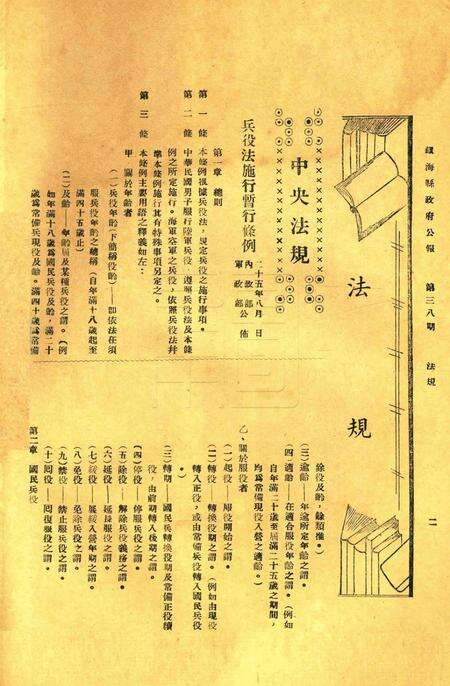 鎭海縣政府公報　第三八期　法規　二
法規
中央法規
兵役法施行暫行條例
二十五年八月　日
內政部
軍政部公佈
第一章　總則
第一條　本條例根據兵役法，規定兵役之施行事項。
第二條　中華民國男子服行陸軍兵役，遵照兵役法及本條
例之所定施行。海軍空軍之兵役，依照兵役法幷
準本條例施行其有特殊事項另定之。
第三條　本條例主要用語之釋義如左：
甲、關於年齡者
（一）兵役年齡（下簡稱役齡）——卽依法在須
服兵役年齡之總稱（自年滿十八歲起至
滿四十五歲止）
（二）及齡——年齡屆及某種兵役之謂。（例
如年滿十八歲爲國民兵役及齡，滿二十
歲爲常備兵現役及齡。滿四十歲爲常備
除役及齡，餘類推。）
（三）逾齡——年逾所定年齡之謂。
（四）適齡——在適合服役年齡之謂。（例如
自年滿二十歲至屆滿二十五歲之期間，
均爲常備現役入營之適齡。）
乙、關於服役者
（一）起役　服役開始之謂。
（二）轉役　轉換役期之謂。（例如由現役
轉入正役，或由常備兵役轉入國民兵役
。）
（三）轉期——國民兵轉換役期及常備正役續
役，由前期轉入後期之謂。
（四）停役——停服兵役之謂。
（五）除役——解除兵役義務之謂。
（六）延役——延長服役之謂。
（七）緩役——展緩入營年期之謂。
（八）免役——免除兵役之謂。
（九）禁役——禁止服兵役之謂。
（十）囘役——囘復服役之謂。
第二章　國民兵役